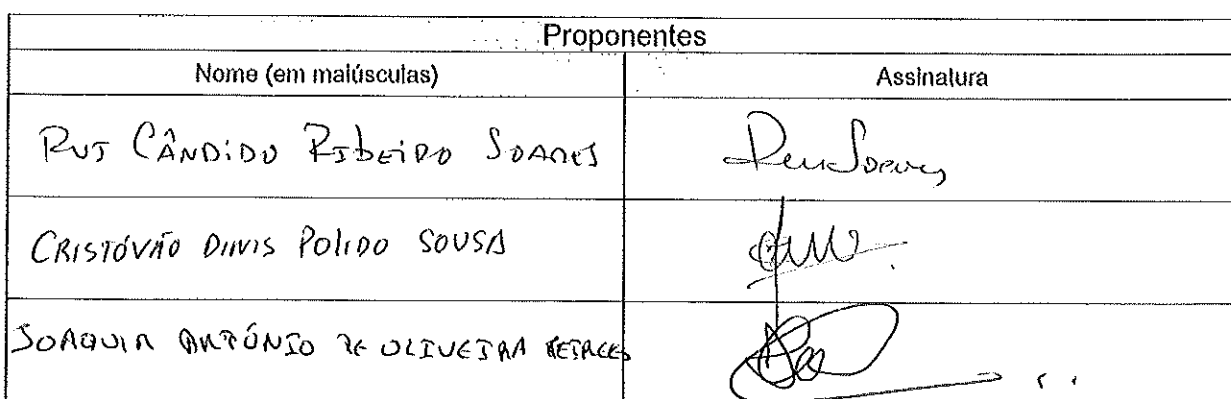 Proponentes
Nome (em maiúsculas) Assinatura
RUI CÂNDIDO RIBEIRO SOARES Rui Soares
CRISTÓVÃO DINIS POLIDO SOUSA
JOAQUIM ANTÓNIO DE OLIVEIRA